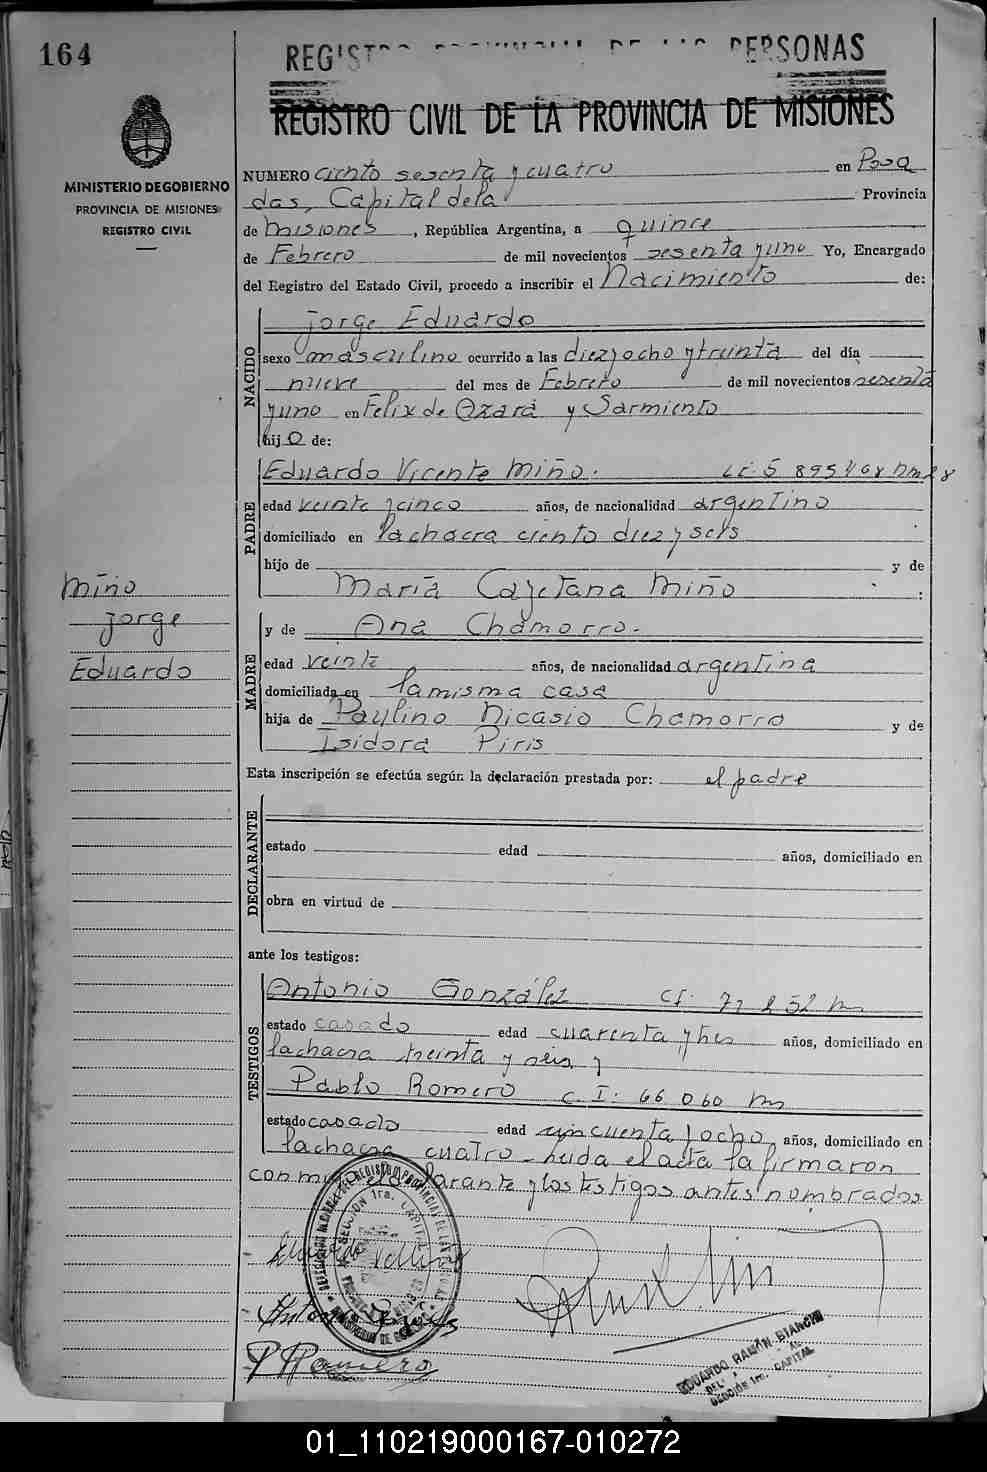 164
REGISTRO PROVINCIAL DE LAS PERSONAS
REGISTRO CIVIL DE LA PROVINCIA DE MISIONES
MINISTERIO DE GOBIERNO
PROVINCIA DE MISIONES
REGISTRO CIVIL
NUMERO ciento sesenta y cuatro en Posa
das, Capital dela Provincia
de Misiones, República Argentina, a quince
de Febrero de mil novecientos sesenta yuno Yo, Encargado
del Registro del Estado Civil, procedo a inscribir el Nacimiento de:
NACIDO
Jorge Eduardo
sexo masculino ocurrido a las diezyocho ytreinta del día
nueve del mes de Febrero de mil novecientos sesenta
yuno en Felix de Azara y Sarmiento
hijo de:
PADRE
Eduardo Vicente Miño.
edad veinte ycinco años, de nacionalidad argentino
domiciliado en lachacra ciento diez y seis
hijo de y de
Maria Cayetana Miño :
Miño
Jorge
Eduardo
MADRE
y de Ana Chamorro.
edad veinte años, de nacionalidad argentina
domiciliada en lamisma casa
hija de Paulino Nicasio Chamorro y de
Isidora Piris
Esta inscripción se efectúa según la declaración prestada por: el padre
DECLARANTE
estado edad años, domiciliado en
obra en virtud de
ante los testigos:
TESTIGOS
Antonio González
estado casado edad cuarenta ytres años, domiciliado en
lachacra treinta y seis y
Pablo Romero C. I. 66 060 Mn
estado casado edad cincuenta yocho años, domiciliado en
lachacra cuatro-leida el acta lafirmaron
conmigo el declarante ylostestigos antes nombrados
P Romero
EDUARDO RAMÓN BIANCHI
SECCIÓN 1ra. CAPITAL
01_110219000167-010272